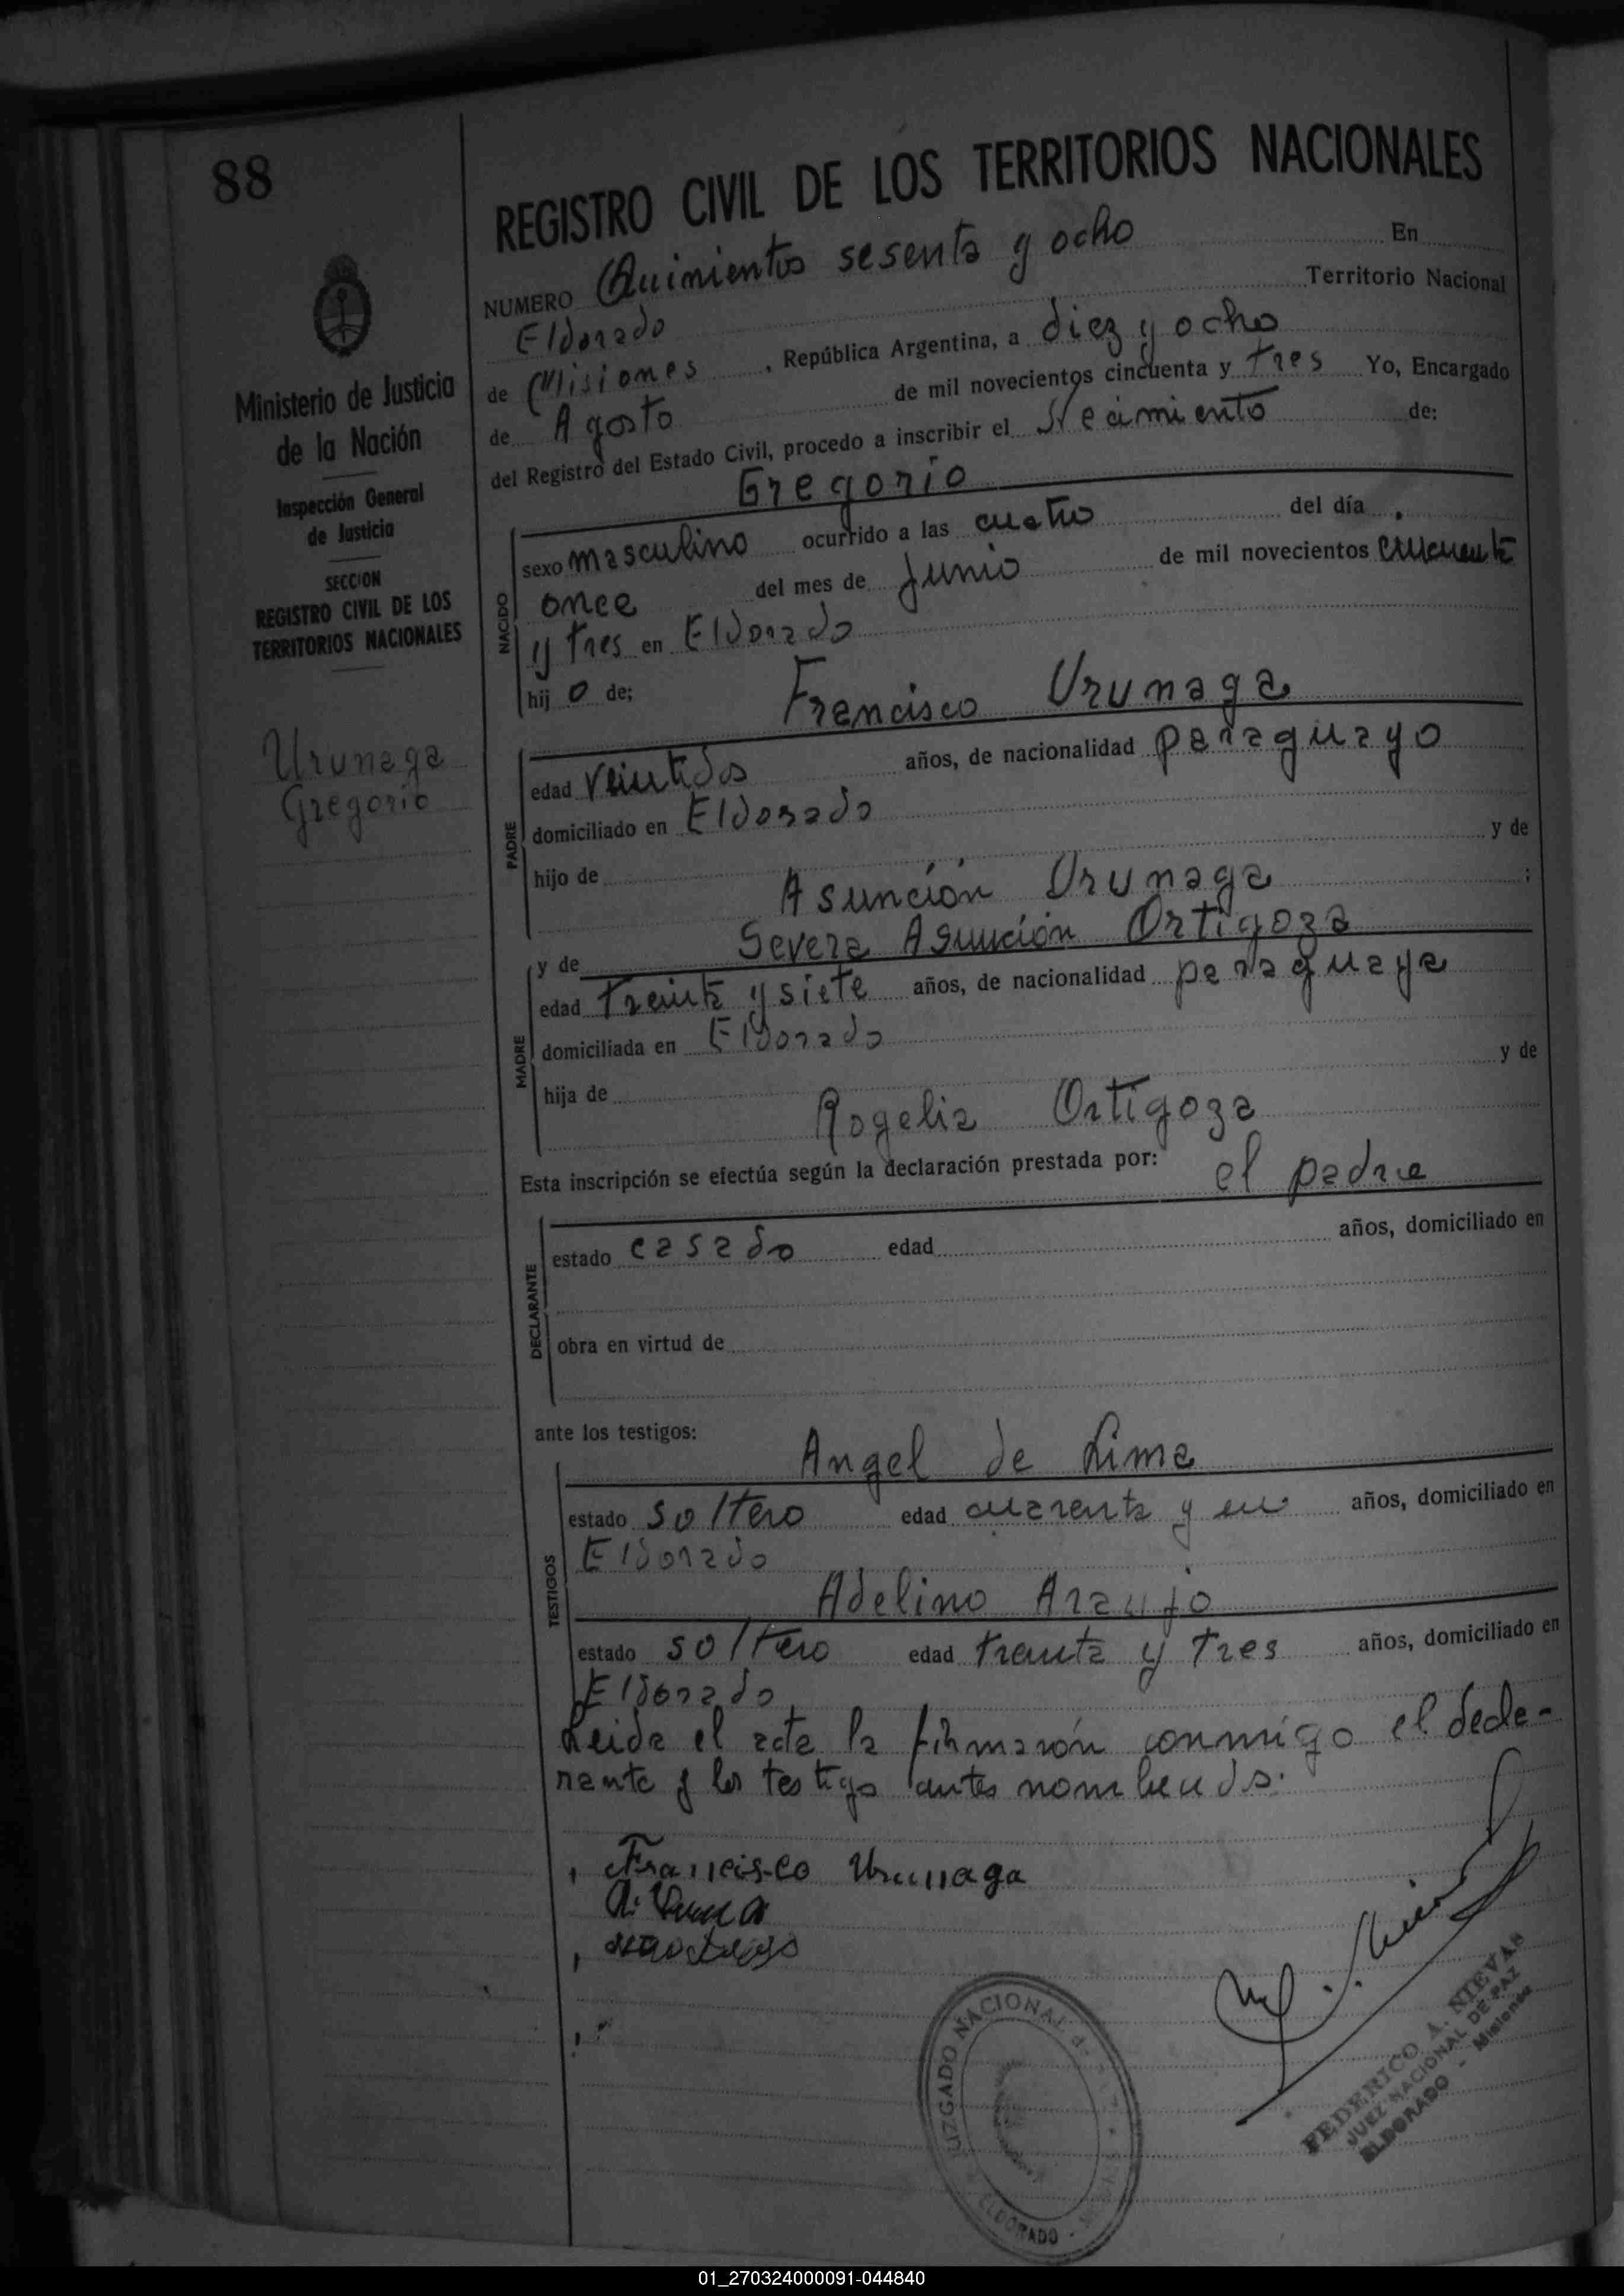 88
REGISTRO CIVIL DE LOS TERRITORIOS NACIONALES
NUMERO Quinientos sesenta y ocho En
Eldorado Territorio Nacional
de Misiones , República Argentina, a diez y ocho
de Agosto de mil novecientos cincuenta y tres Yo, Encargado
del Registro del Estado Civil, procedo a inscribir el Nacimiento de:
Gregorio
NACIDO
sexo masculino ocurrido a las cuatro del día
once del mes de Junio de mil novecientos cincuenta
y tres en Eldorado
hij o de:
Francisco Urunaga
PADRE
edad veintidos años, de nacionalidad paraguayo
domiciliado en Eldorado
hijo de y de
Asunción Urunaga ;
y de Severa Asunción Ortigoza
MADRE
edad treinta y siete años, de nacionalidad paraguaya
domiciliada en Eldorado
hija de y de
Rogelia Ortigoza
Esta inscripción se efectúa según la declaración prestada por:
el padre
DECLARANTE
estado casado edad años, domiciliado en
obra en virtud de
ante los testigos:
Angel de Lima
TESTIGOS
estado soltero edad cuarenta y un años, domiciliado en
Eldorado
Adelino Araujo
estado soltero edad treinta y tres años, domiciliado en
Eldorado
Leida el acta la firmarón conmigo el decla-
rante y los testigo antes nombrados.
Francisco Urunaga
Ministerio de Justicia
de la Nación
Inspección General
de Justicia
SECCION
REGISTRO CIVIL DE LOS
TERRITORIOS NACIONALES
Urunaga
Gregorio
JUZGADO NACIONAL de
ELDORADO
FEDERICO A. NIEVAS
JUEZ NACIONAL DE PAZ
ELDORADO - Misiones
01_270324000091-044840